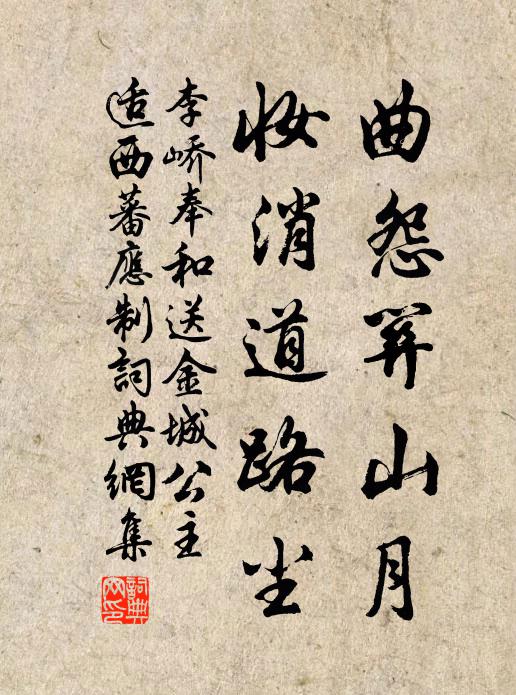 曲怨关山月
妆消道路尘
李峤奉和送金城公主
适西蕃應制詞典網集
詞典
网印